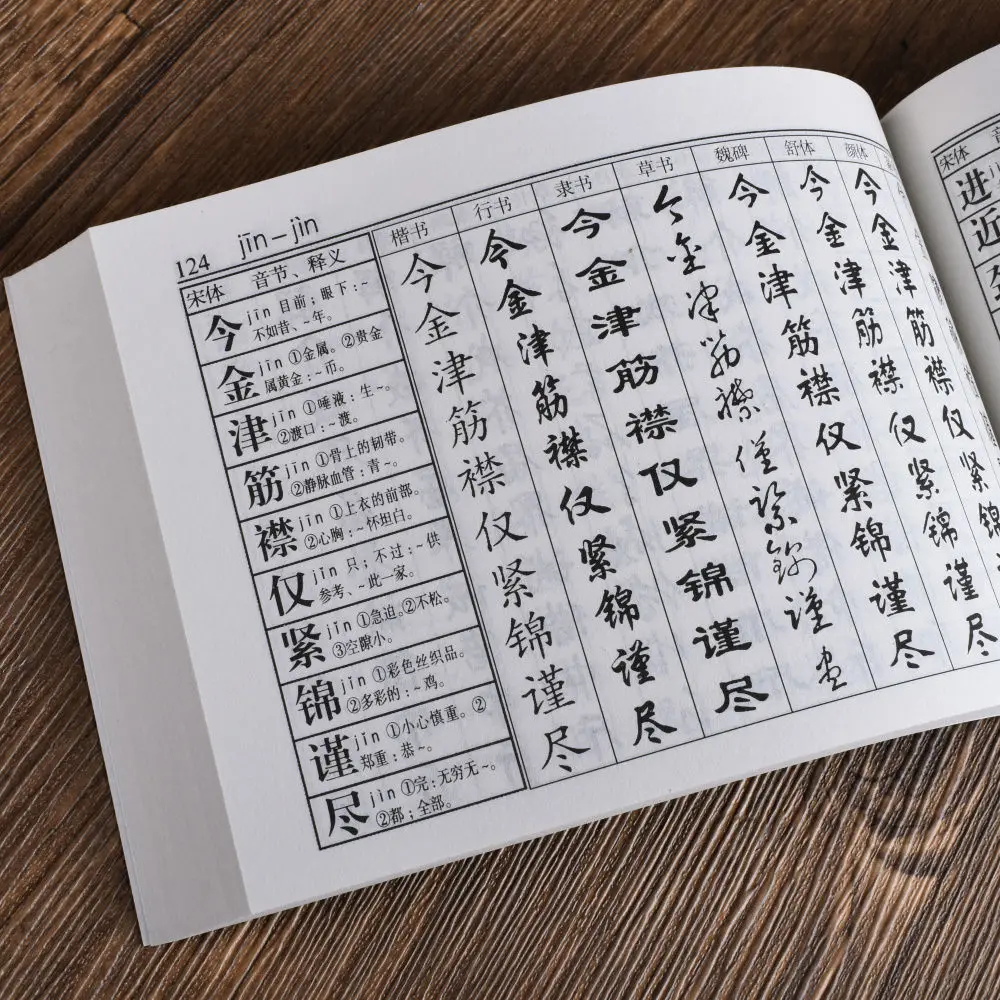 124 jīn – jìn
宋体 音节、释义 楷书 行书 隶书 草书 魏碑 舒体 颜体
今 jīn 目前；眼下：~ 今 今 今 今 今 今 今
不如昔、~年。
金 jīn ①金属。②贵金 金 金 金 金 金 金 金
属黄金：~币。
津 jīn ①唾液：生~。 津 津 津 津 津 津 津
②渡口：~渡。
筋 jīn ①骨上的韧带。 筋 筋 筋 筋 筋 筋 筋
②静脉血管：青~。
襟 jīn ①上衣的前部。 襟 襟 襟 襟 襟 襟 襟
②心胸：~怀坦白。
仅 jǐn 只；不过：~供 仅 仅 仅 僅 仅 仅 仅
参考、~此一家。
紧 jǐn ①急迫。②不松。 紧 紧 紧 紧 紧 紧 紧
③空隙小。
锦 jǐn ①彩色丝织品。 锦 锦 锦 锦 锦 锦 锦
②多彩的：~鸡。
谨 jǐn ①小心慎重。② 谨 谨 谨 谨 谨 谨 谨
郑重：恭~。
尽 jìn ①完：无穷无~。 尽 尽 尽 尽 尽 尽
②都；全部。
宋体
进
近